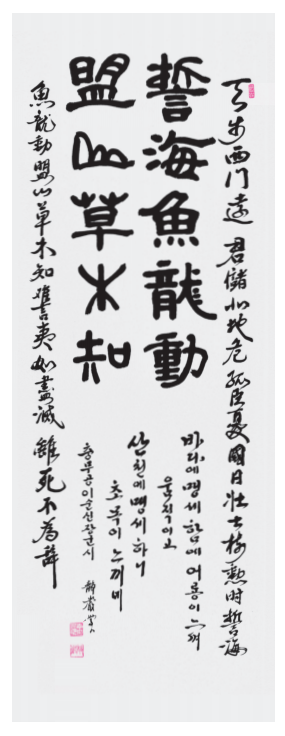 天步西門遠 君儲北地危 孤臣憂國日 壯士樹勳時 誓海
誓海魚龍動
盟山草木知
魚龍動盟山草木知 讐夷如盡滅 雖死不為辭
바다에 맹세함에 어룡이 느껴
움직이고
산천에 맹세하니
초목이 느끼네
충무공이순신장군시